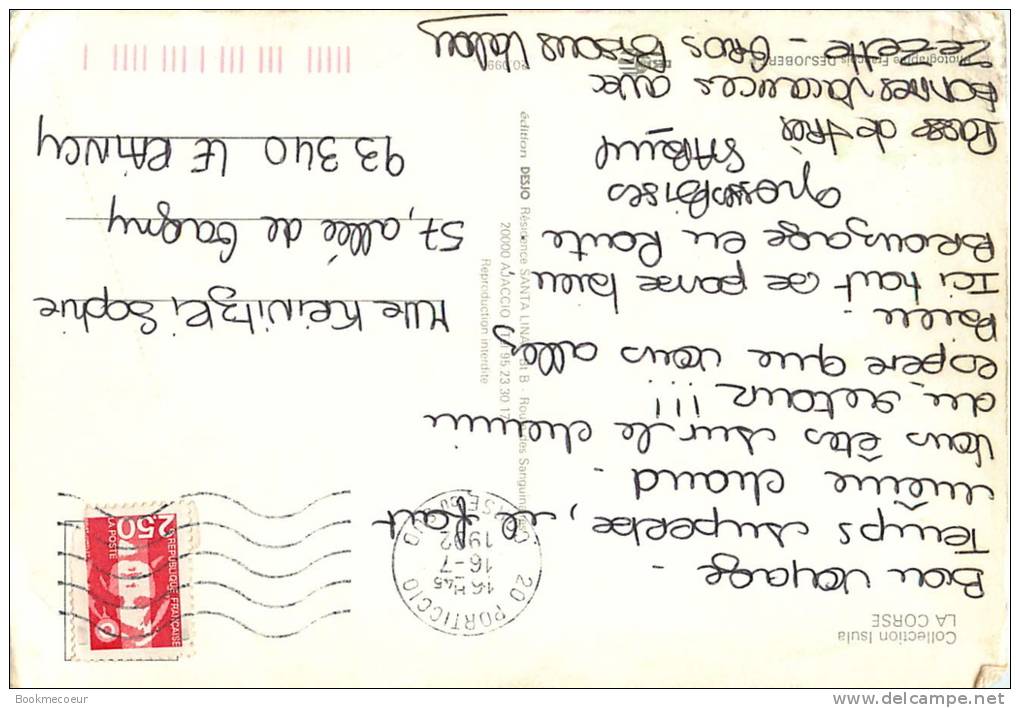 Collection Isula
LA CORSE
Bon voyage -
Temps superbe, il fait
même chaud -
vous êtes sur le chemin
du retour !!!
espère que vous allez
bien -
Ici tout se passe bien
Bronzage en Route
grosses Bises
Passe de très
Bonnes vacances avec
Zezette - GROS BISOUS
20 PORTICCIO
16 H 45
16-7
1992
CORSE DU SUD
REPUBLIQUE FRANÇAISE
2,50
LA POSTE
édition DESJO Résidence SANTA LINA Bt B - Route des Sanguinaires
20000 AJACCIO Tél 95 23 30 17
Reproduction interdite
Mlle Krivitzki Sophie
57, allée de Gagny
93340 LE RAINCY
Photographie François DESJOBERT
Bookmecoeur
http://www.delcampe.net